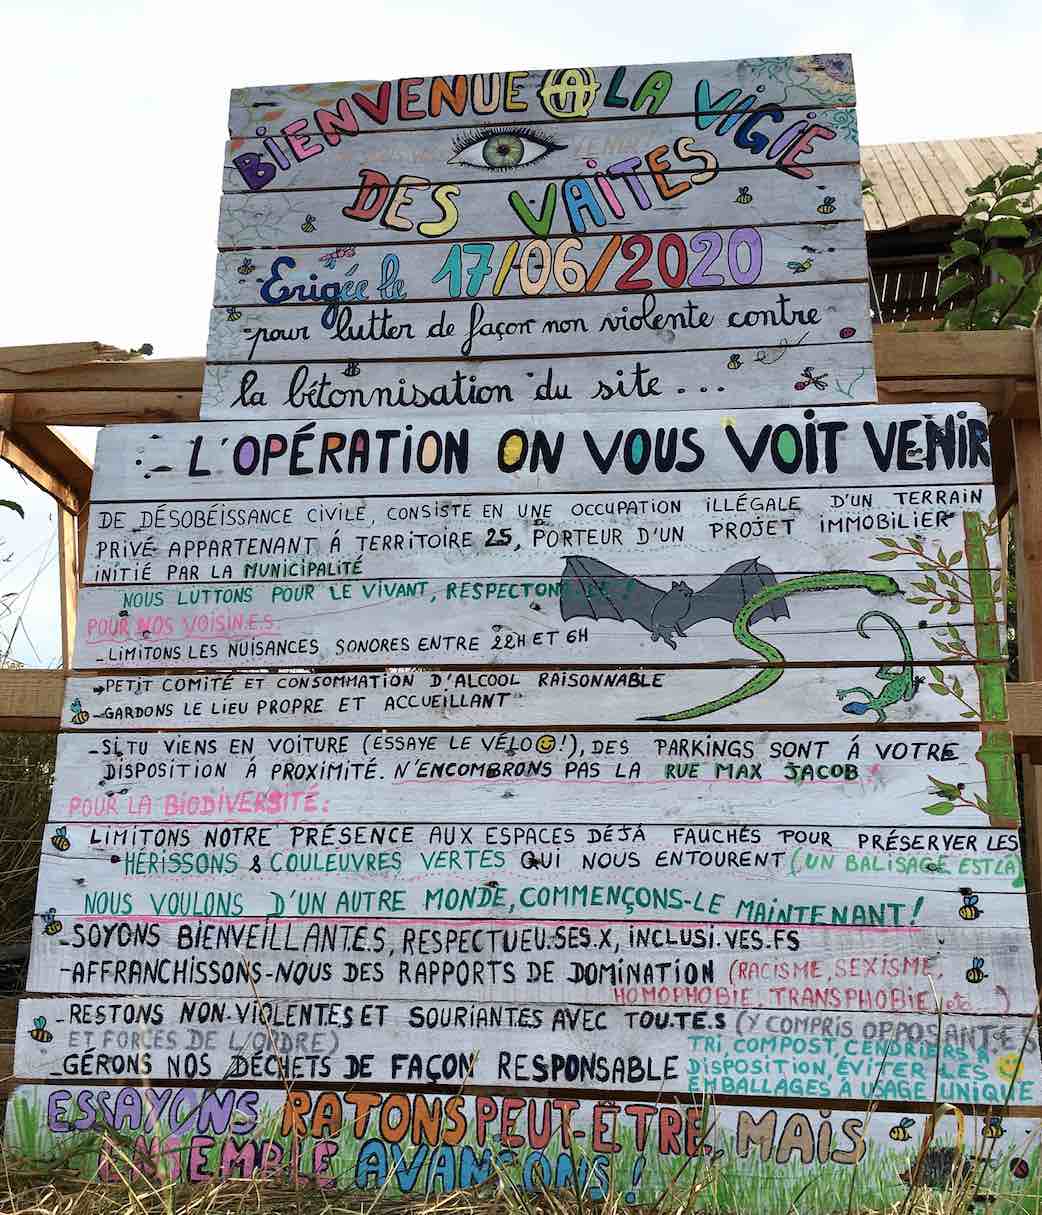 BIENVENUE Ⓐ LA VIGIE
DES VAITES
Erigée le 17/06/2020
pour lutter de façon non violente contre
la bétonnisation du site...
L'OPÉRATION ON VOUS VOIT VENIR
DE DÉSOBÉISSANCE CIVILE, CONSISTE EN UNE OCCUPATION ILLÉGALE D'UN TERRAIN
PRIVÉ APPARTENANT Á TERRITOIRE 25, PORTEUR D'UN PROJET IMMOBILIER
INITIÉ PAR LA MUNICIPALITÉ
NOUS LUTTONS POUR LE VIVANT, RESPECTONS-LE !
POUR NOS VOISIN.E.S:
-LIMITONS LES NUISANCES SONORES ENTRE 22H ET 6H
-PETIT COMITÉ ET CONSOMMATION D'ALCOOL RAISONNABLE
-GARDONS LE LIEU PROPRE ET ACCUEILLANT
-SI TU VIENS EN VOITURE (ESSAYE LE VÉLO☺!), DES PARKINGS SONT Á VOTRE
DISPOSITION Á PROXIMITÉ. N'ENCOMBRONS PAS LA RUE MAX JACOB !
POUR LA BIODIVERSITÉ:
LIMITONS NOTRE PRÉSENCE AUX ESPACES DÉJÀ FAUCHÉS POUR PRÉSERVER LES
HÉRISSONS & COULEUVRES VERTES QUI NOUS ENTOURENT (UN BALISAGE EST LÀ)
NOUS VOULONS D'UN AUTRE MONDE, COMMENÇONS-LE MAINTENANT!
-SOYONS BIENVEILLANT.E.S, RESPECTUEU.SES.X, INCLUSI.VES.FS
-AFFRANCHISSONS-NOUS DES RAPPORTS DE DOMINATION (RACISME, SEXISME,
HOMOPHOBIE, TRANSPHOBIE, etc...)
-RESTONS NON-VIOLENT.E.S ET SOURIANT.E.S AVEC TOU.TE.S (Y COMPRIS OPPOSANT.E.S
ET FORCES DE L'ORDRE)
-GÉRONS NOS DÉCHETS DE FAÇON RESPONSABLE
TRI, COMPOST, CENDRIERS À
DISPOSITION, ÉVITER LES
EMBALLAGES À USAGE UNIQUE
ESSAYONS RATONS PEUT-ÊTRE, MAIS
ENSEMBLE AVANÇONS !